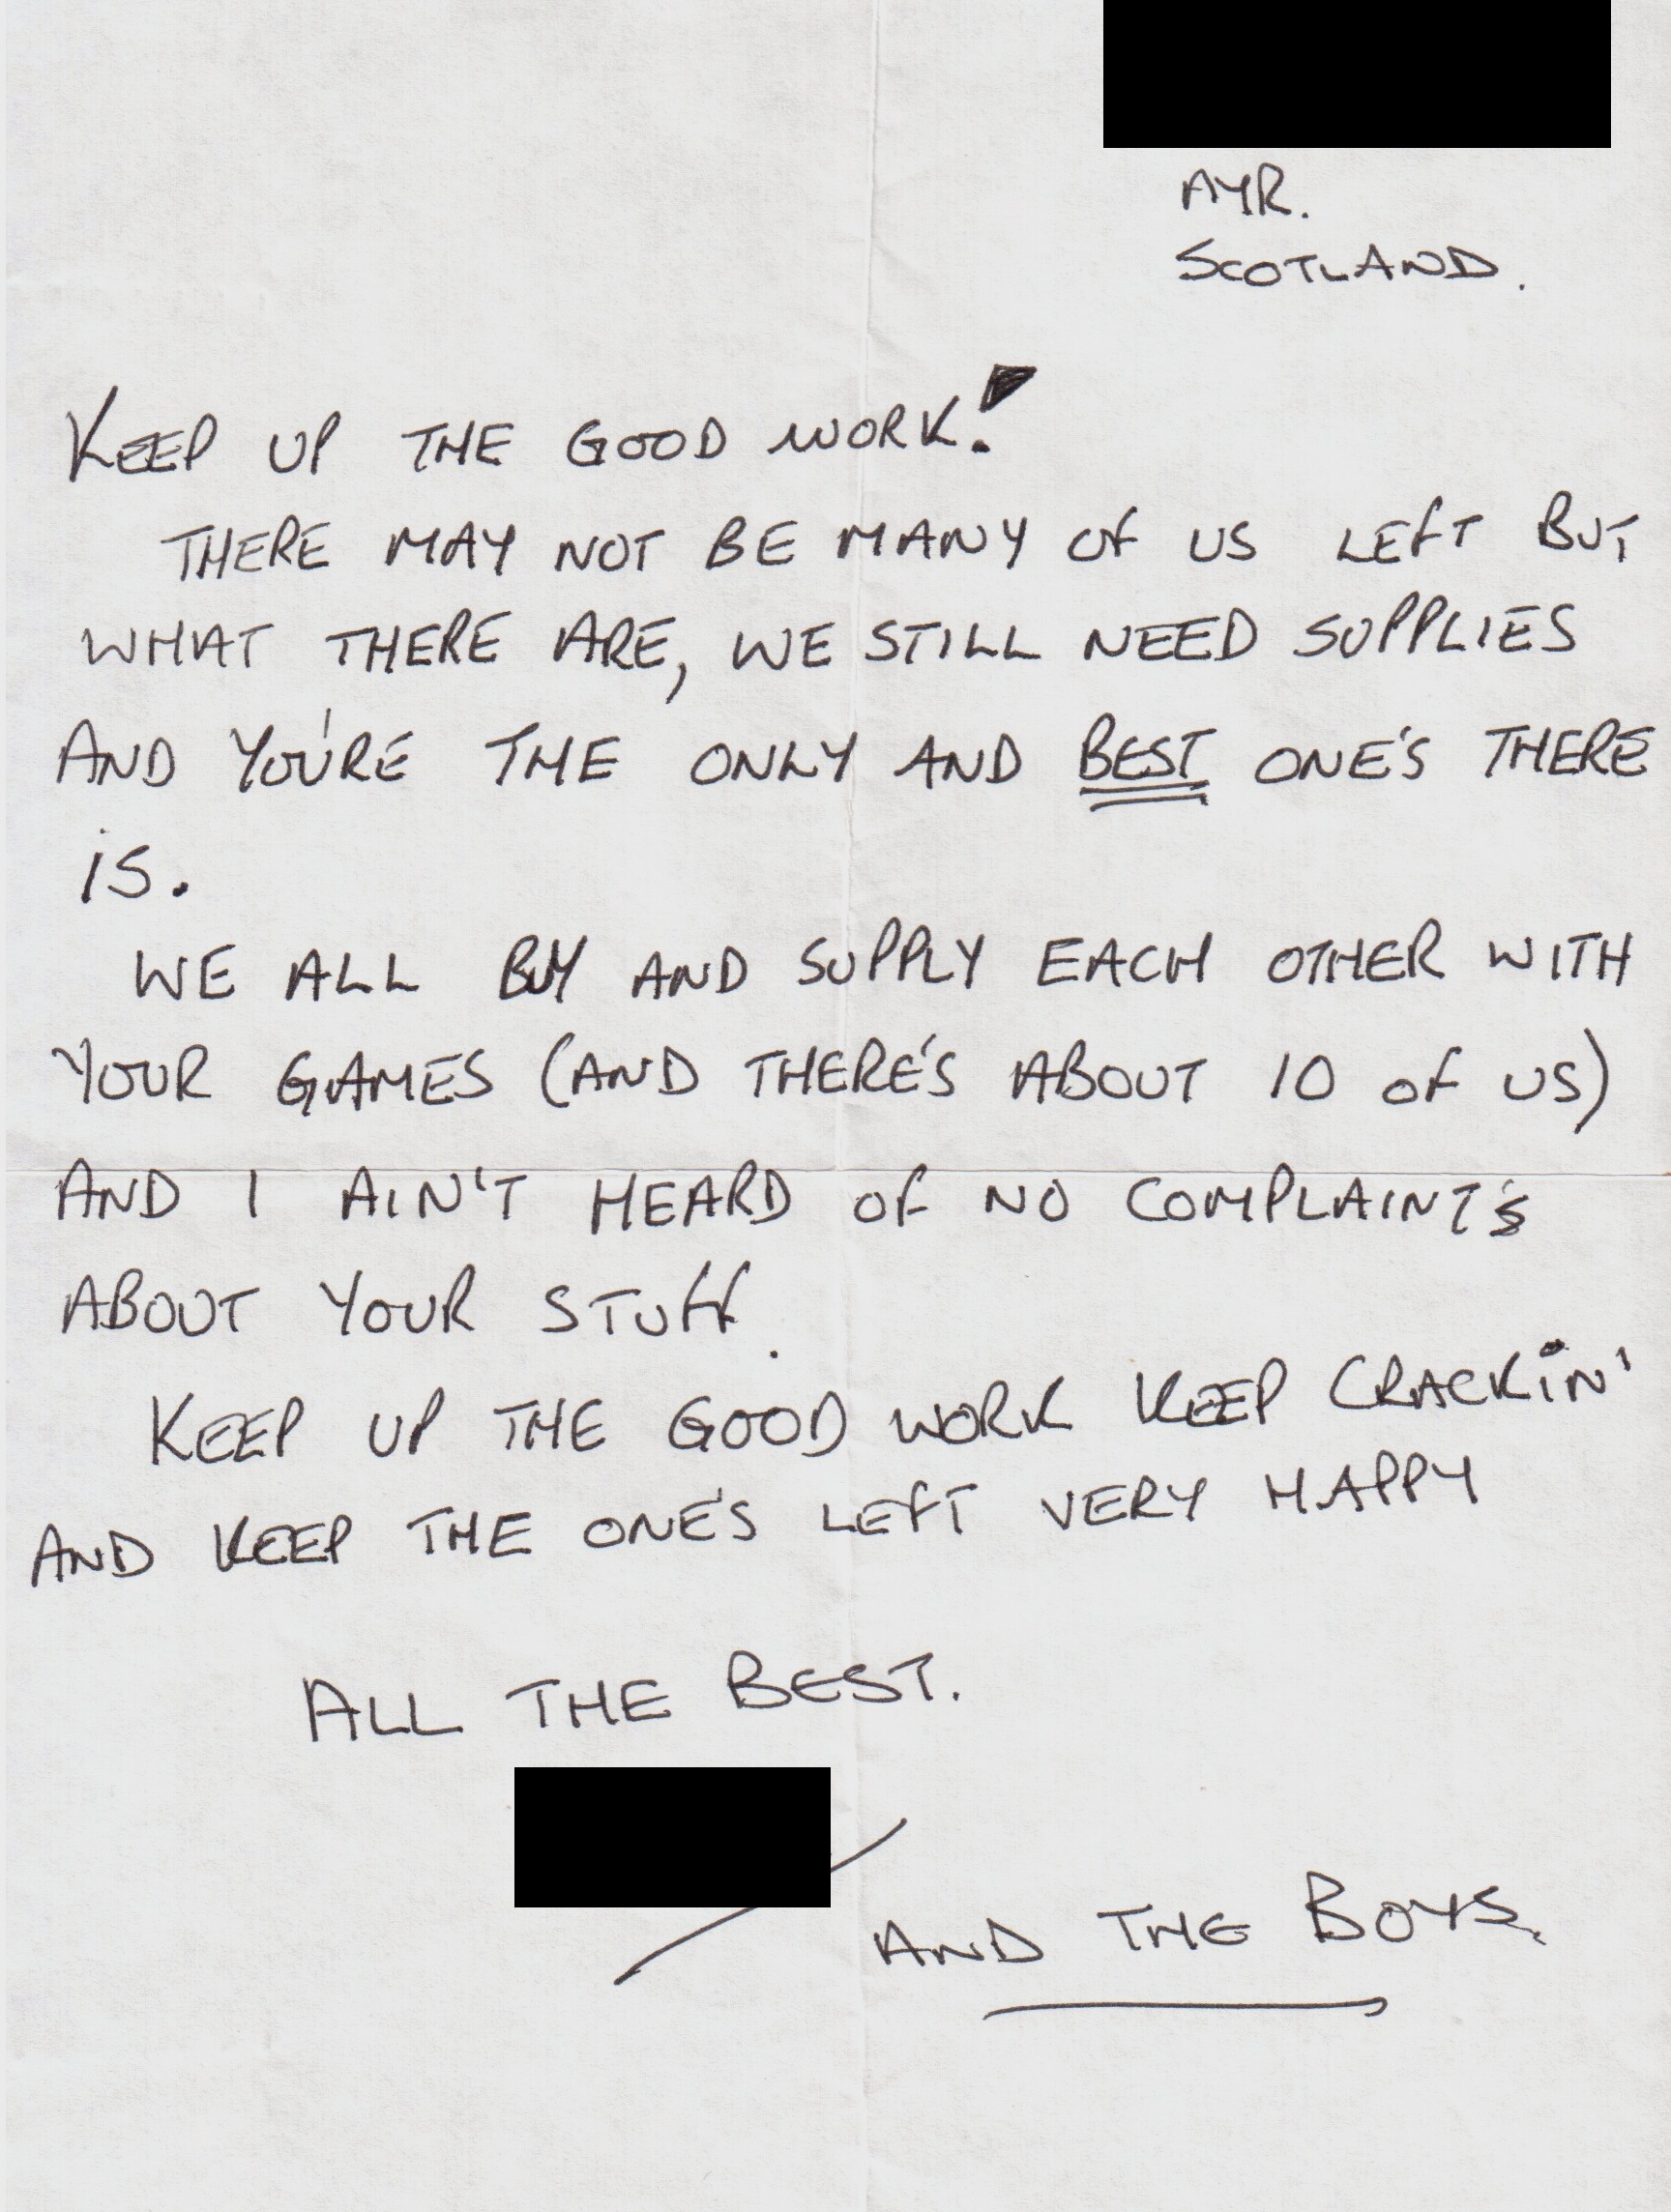 AYR.
SCOTLAND.
KEEP UP THE GOOD WORK!
THERE MAY NOT BE MANY Of US LEfT BUT
WHAT THERE ARE, WE STILL NEED SUPPLIES
AND YOU'RE THE ONLY AND BEST ONE'S THERE
iS.
WE ALL BUY AND SUPPLY EACH OTHER WITH
YOUR GAMES (AND THERE'S ABOUT 10 of US)
AND I AIN'T HEARD Of NO COMPLAINT'S
ABOUT YOUR STUff.
KEEP UP THE GOOD WORK KEEP CRACKiN'
AND KEEP THE ONE'S LEfT VERY HAPPY
ALL THE BEST.
AND THE BOYS.